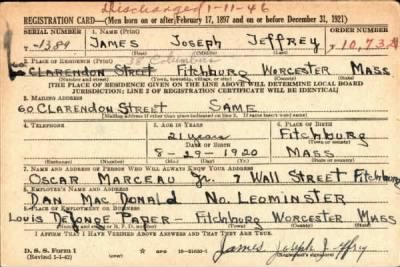 Discharged 1-11-46
REGISTRATION CARD—(Men born on or after February 17, 1897 and on or before December 31, 1921)
SERIAL NUMBER 1. NAME (Print) ORDER NUMBER
T-1389 JAMES JOSEPH JEFFREY 10,732
(First) (Middle) (Last)
2. PLACE OF RESIDENCE (Print)
60 CLARENDON STREET Fitchburg WORCESTER MASS
(Number and street) (Town, township, village, or city) (County) (State)
[THE PLACE OF RESIDENCE GIVEN ON THE LINE ABOVE WILL DETERMINE LOCAL BOARD
JURISDICTION; LINE 2 OF REGISTRATION CERTIFICATE WILL BE IDENTICAL]
3. MAILING ADDRESS
60 CLARENDON STREET SAME
[Mailing address if other than place indicated on line 2. If same insert word same]
4. TELEPHONE 5. AGE IN YEARS 6. PLACE OF BIRTH
21 years Fitchburg
DATE OF BIRTH (Town or county)
8-29-1920 MASS
(Exchange) (Number) (Mo.) (Day) (Yr.) (State or country)
7. NAME AND ADDRESS OF PERSON WHO WILL ALWAYS KNOW YOUR ADDRESS
OSCAR MARCEAU Jr. 7 WALL STREET Fitchburg
8. EMPLOYER'S NAME AND ADDRESS
DAN MAC DONALD NO. LEOMINSTER
9. PLACE OF EMPLOYMENT OR BUSINESS
Louis DeJonge PAPER - Fitchburg WORCESTER MASS
(Number and street or R. F. D. number) (Town) (County) (State)
I AFFIRM THAT I HAVE VERIFIED ABOVE ANSWERS AND THAT THEY ARE TRUE.
D. S. S. Form 1 GPO 16-21630-1 James Joseph Jeffrey
(Revised 1-1-42) (Registrant's signature)